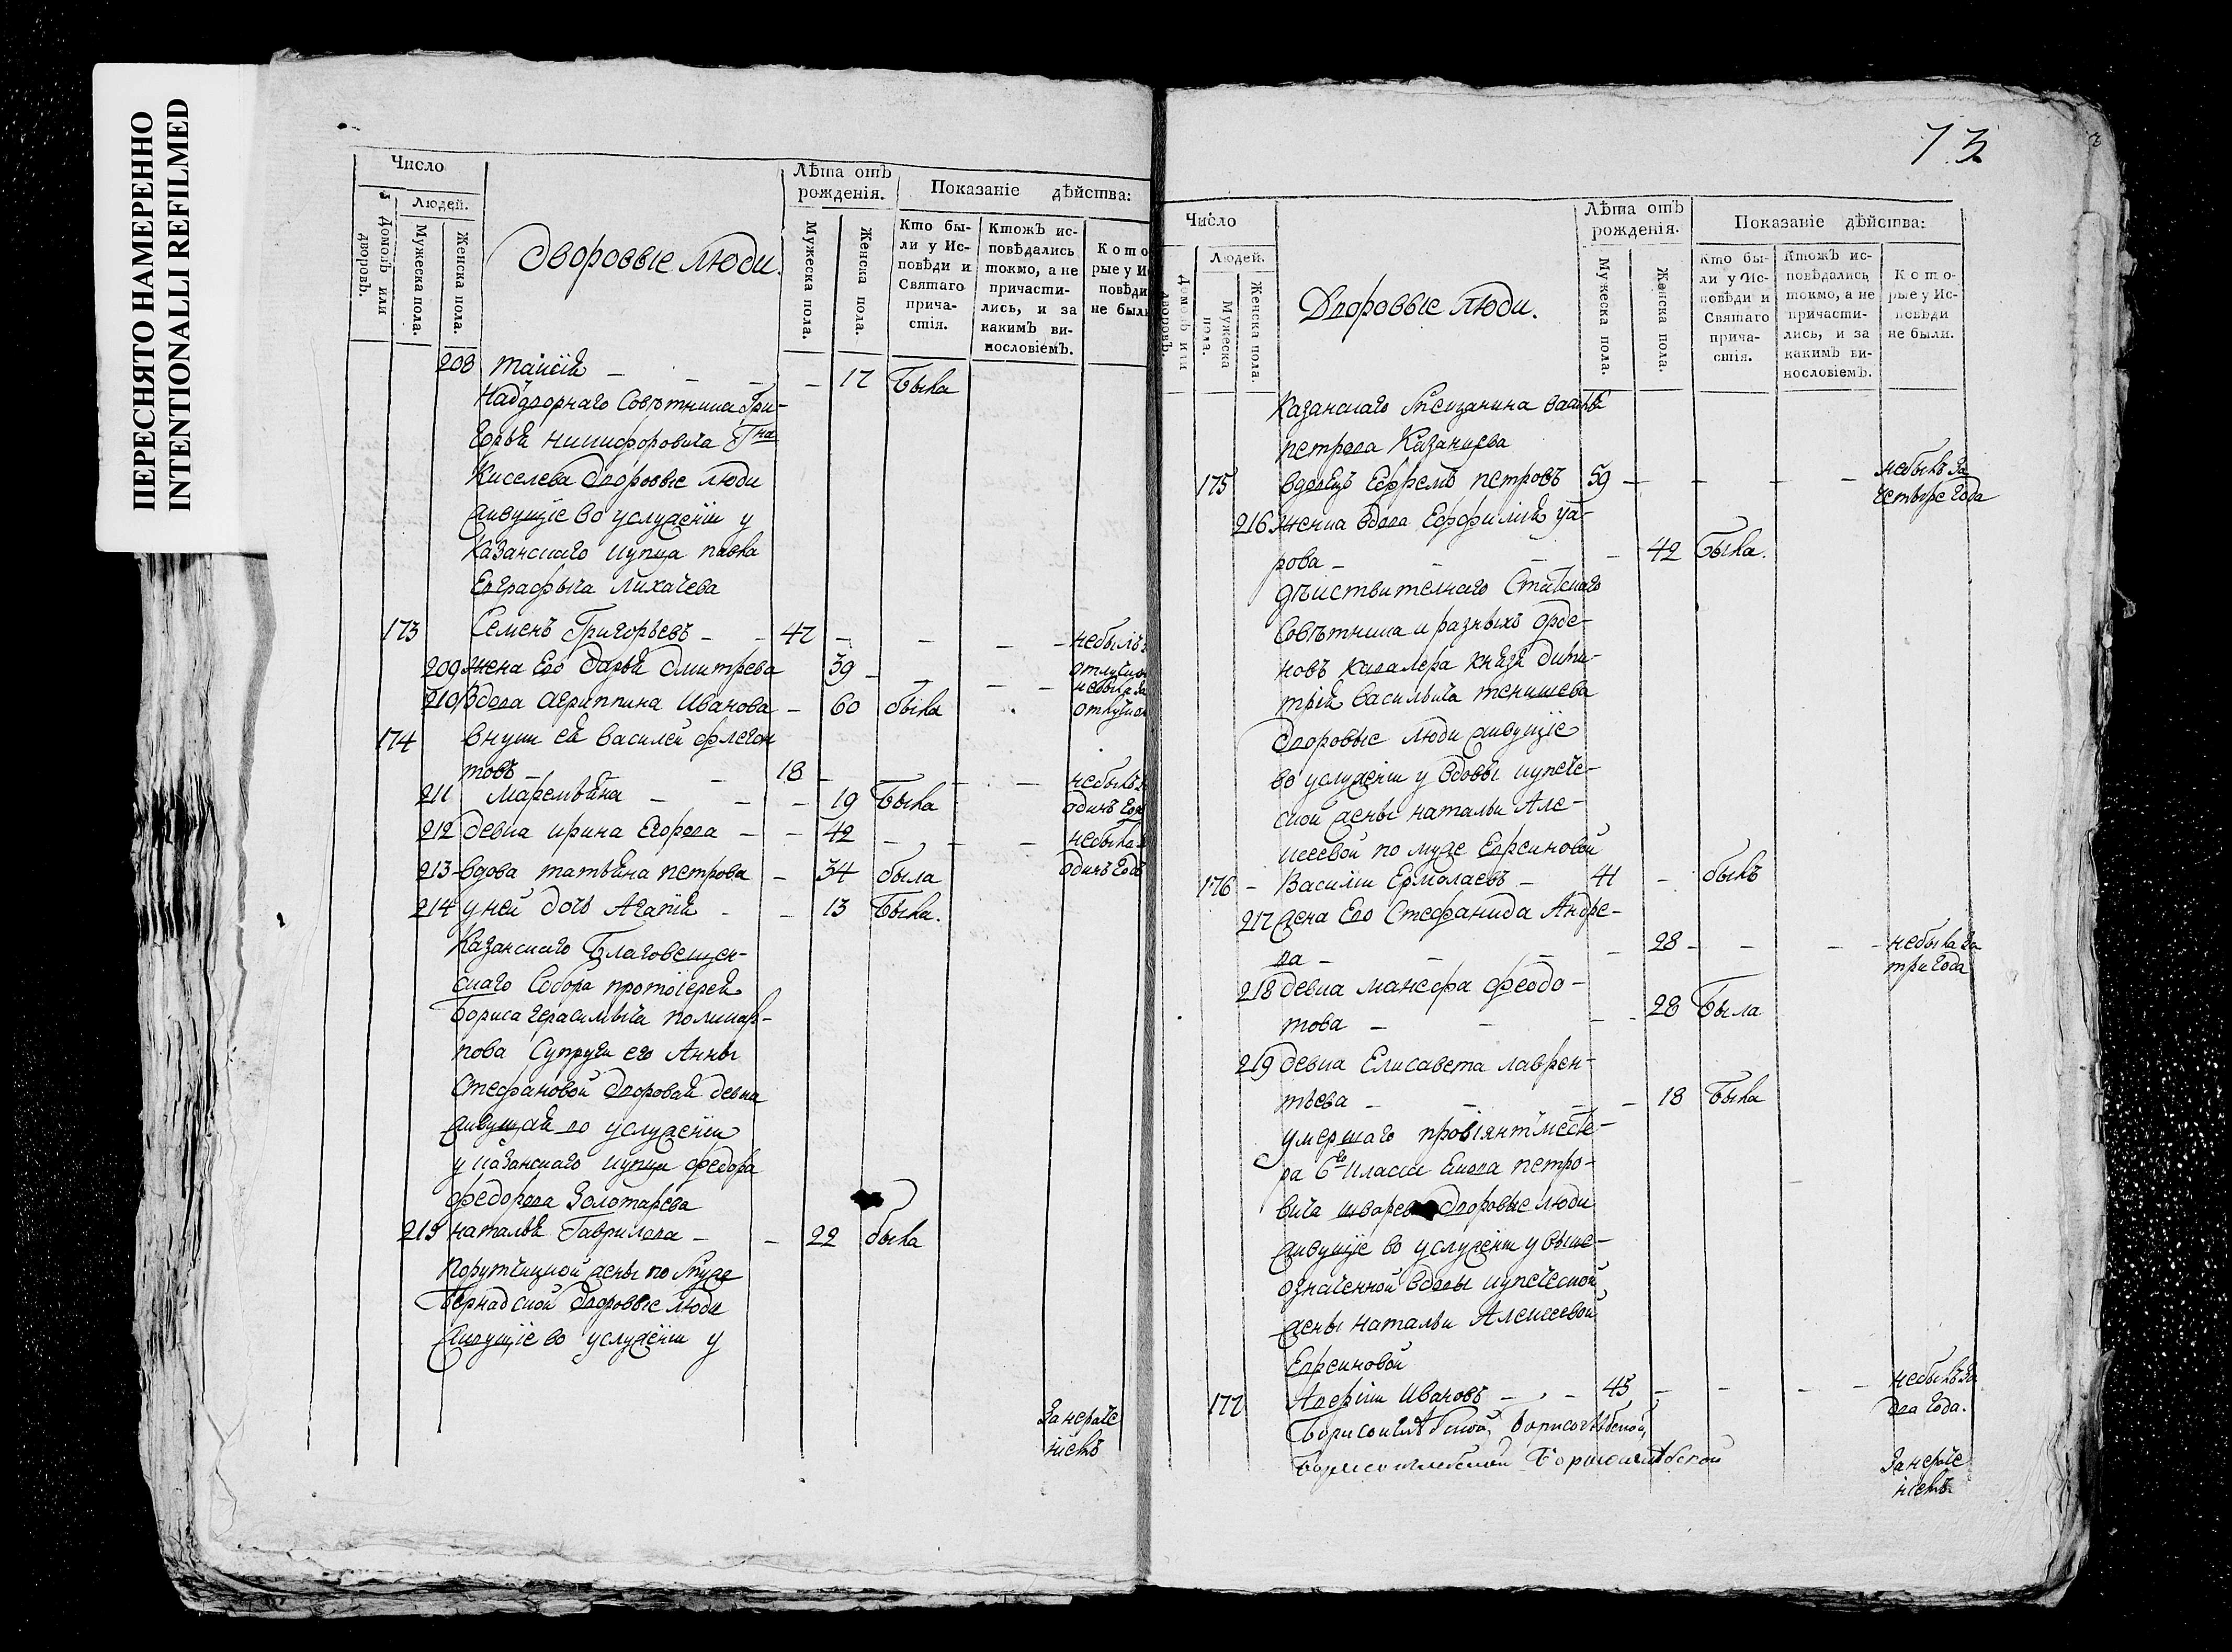 ПЕРЕСНЯТО НАМЕРЕННО
INTENTIONALLI REFILMED
Число
Домовъ или дворовъ.
Людей.
Мужеска пола.
Женска пола.
Дворовые люди.
Лѣта отъ рожденія.
Мужеска пола.
Женска пола.
Показаніе дѣйства:
Кто бы-
ли у Ис-
повѣди и
Святаго
прича-
стія.
Ктожъ ис-
повѣдались
токмо, а не
причасти-
лись, и за
какимъ ви-
нословіемъ.
Кото
рые у И
повѣди
не были
208 таисія - - - - 17 была
Надворнаго Советника Гри-
горья никифоровича Гна
Киселева дворовые люди
живущіе во услуженіи у
Казанскаго купца павла
Евграфыча Лихачева
173 Семенъ Григорьевъ - - 47 - - - небылъ з
209 жена Его дарья дмитрева 39 - - - отлучко
210 Вдова агриппина Иванова - 60 была небыла за отлучк
174 внукъ ея василеи флегон
товъ - - 18 - - - небылъ
211 Маремьяна - - - 19 была одинъ год
212 девка ирина Егорова - - 42 - - - небыла
213 вдова татьяна петрова - 34 была одинъ годъ
214 у ней дочь Агапія - - 13 была.
Казанскаго Благовещен-
скаго Собора протоіерея
бориса герасимыча поликар-
пова Супруги его Анны
Стефановой дворовая девка
живущая во услуженіи
у казанскаго купца федора
федорова Золотарева
215 наталья Гаврилова - - 22 была
порутчицкой жены по муже
Бернадской дворовые люди
живущіе во услуженіи у
73
Число
Домовъ или дворовъ.
Людей.
Мужеска пола.
Женска пола.
Дворовые люди.
Лѣта отъ рожденія.
Мужеска пола.
Женска пола.
Показаніе дѣйства:
Кто бы-
ли у Ис-
повѣди и
Святаго
прича-
стія.
Ктожъ ис-
повѣдались
токмо, а не
причасти-
лись, и за
какимъ ви-
нословіемъ.
Кото-
рые у Ис-
повѣди
не были.
Казанскаго Мещанина василья
петрова Казанцева
175 вдовецъ Ефремъ петровъ 59 - - - - небылъ за четыре года
216 женка вдова Ефимия ува-
рова - - - - 42 была.
дѣиствителнаго Статскаго
Совѣтника и разныхъ орде-
новъ кавалера князя дими-
трія васильича тенишева
дворовые люди живущіе
во услуженіи у вдовы купече-
ской жены натальи Але-
ксеевой по муже Евреиновой
176 - Василии Ермолаевъ - 41 - былъ
217 жена Его Стефанида Андре-
ва - - - - 28 - - - - небыла за три года
218 девка манефа феодо-
това - - - - 28 была
219 девка Елисавета лаврен-
тьева - - - - 18 была
умершаго провіянтместе-
ра 6го класса Якова петро-
вича дворовые люди
живущіе во услуженіи у выше-
означенной вдовы купеческой
жены натальи Алексеевой
Евреиновой
177 Авефіи Ивановъ - - - 45 - - - - небылъ за два года.
Борисоглѣбской, борисоглѣбской,
борисоглебской Борисоглѣбской